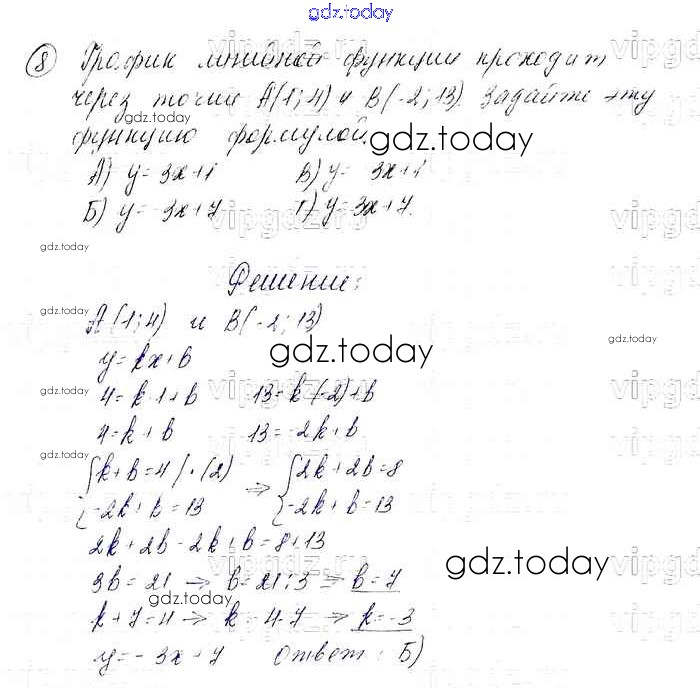 gdz.today
8 График линейной функции проходит
через точки А(1; 4) и В(-2; 13). Задайте эту
gdz.today
функцию формулой.
gdz.today
А) y = 3x+1 В) y = 3x+1
Б) y = -3x+7 Г) y = 3x+7.
gdz.today
Решение:
А(1; 4) и В(-2; 13)
gdz.today
y = kx+b
gdz.today
gdz.today
4 = k·1+b 13 = k·(-2)+b
gdz.today
4 = k+b 13 = -2k+b
gdz.today
{k+b=4 |·(2) ⇒ {2k+2b=8
-2k+k=13 -2k+b=13
2k+2b-2k+b=8+13
gdz.today
3b=21 → b=21:3 ⇒ b=7
gdz.today
k+7=4 → k=4-7 → k=-3
y=-3x+7 Ответ: Б)